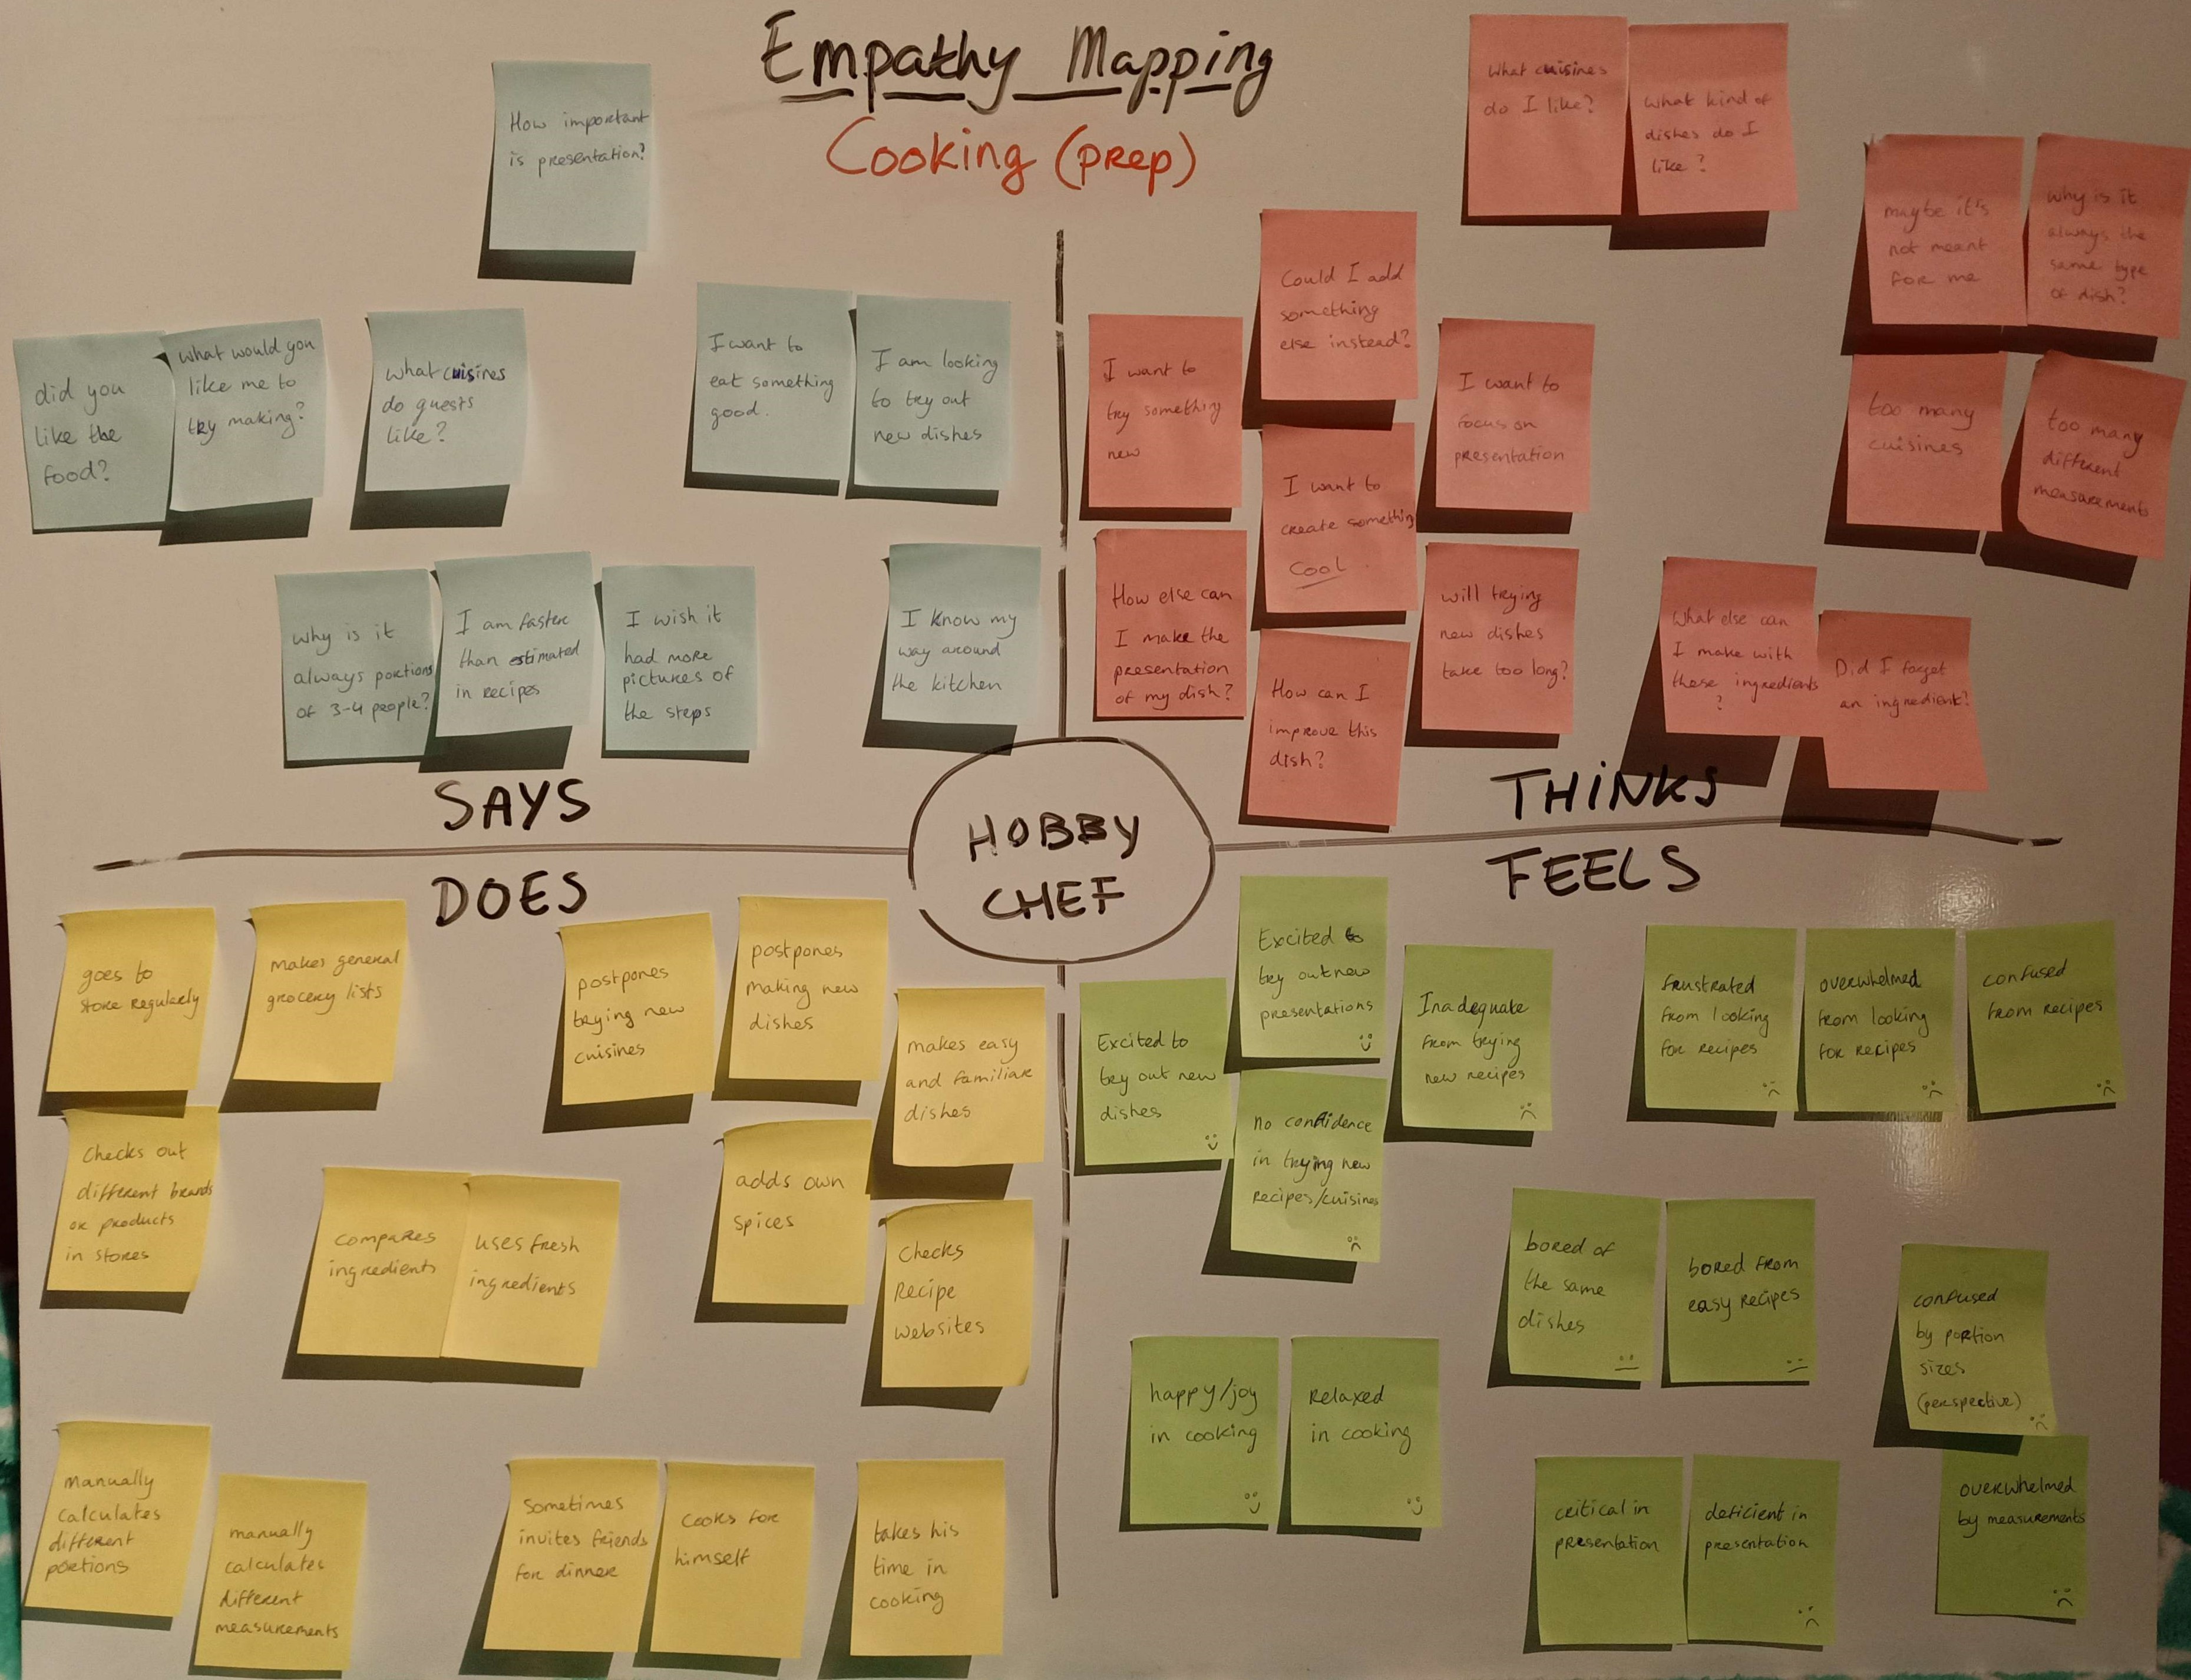 Empathy Mapping
Cooking (prep)
How important
is presentation?
did you
like the
food?
what would you
like me to
try making?
what cuisines
do guests
like?
I want to
eat something
good.
I am looking
to try out
new dishes
why is it
always portions
of 3-4 people?
I am faster
than estimated
in recipes
I wish it
had more
pictures of
the steps
I know my
way around
the kitchen
SAYS
What cuisines
do I like?
What kind of
dishes do I
like?
maybe it's
not meant
for me
why is it
always the
same type
of dish?
too many
cuisines
too many
different
measurements
Could I add
something
else instead?
I want to
try something
new
I want to
focus on
presentation
I want to
create something
cool
How else can
I make the
presentation
of my dish?
will trying
new dishes
take too long?
How can I
improve this
dish?
What else can
I make with
these ingredients
?
Did I forget
an ingredient?
THINKS
HOBBY
CHEF
DOES
goes to
store regularly
makes general
grocery lists
postpones
trying new
cuisines
postpones
making new
dishes
makes easy
and familiar
dishes
Checks out
different brands
or products
in stores
compares
ingredients
uses fresh
ingredients
adds own
spices
checks
recipe
websites
manually
calculates
different
portions
manually
calculates
different
measurements
sometimes
invites friends
for dinner
cooks for
himself
takes his
time in
cooking
FEELS
Excited to
try out new
presentations
Excited to
try out new
dishes
Inadequate
from trying
new recipes
no confidence
in trying new
recipes/cuisines
frustrated
from looking
for recipes
overwhelmed
from looking
for recipes
confused
from recipes
bored of
the same
dishes
bored from
easy recipes
confused
by portion
sizes
(perspective)
happy/joy
in cooking
relaxed
in cooking
critical in
presentation
deficient in
presentation
overwhelmed
by measurements